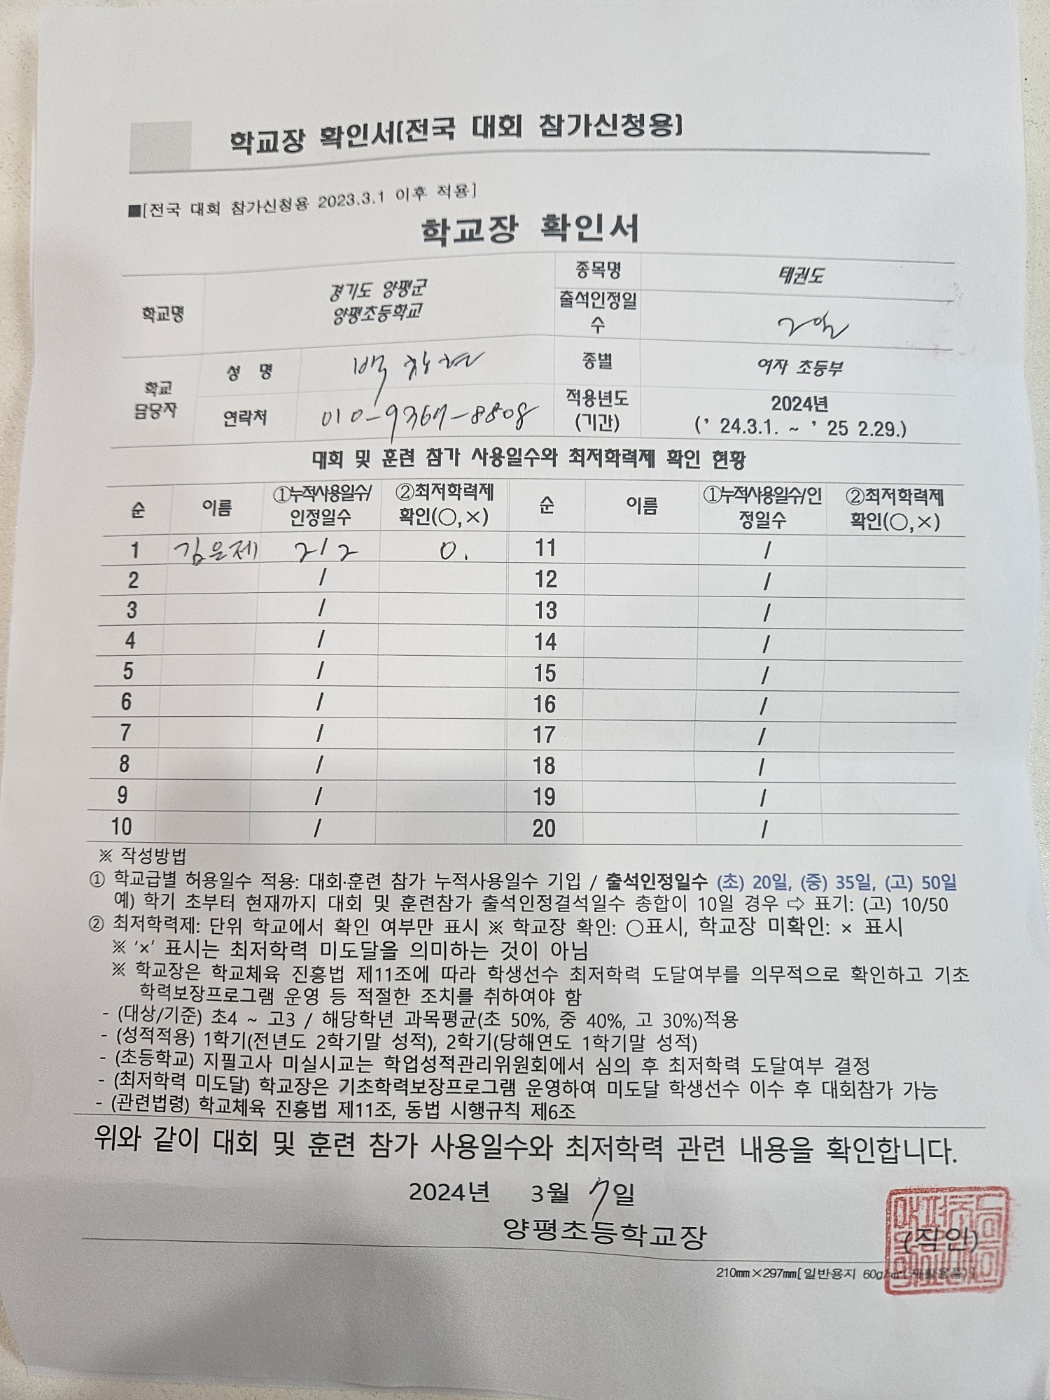 학교장 확인서(전국 대회 참가신청용)
■[전국 대회 참가신청용 2023.3.1 이후 적용]
학교장 확인서
학교명 경기도 양평군 양평초등학교 종목명 태권도
출석인정일수 2일
학교 담당자 성 명 백 종별 여자 초등부
연락처 010-9367-8808 적용년도(기간) 2024년 (’ 24.3.1. ~ ’ 25 2.29.)
대회 및 훈련 참가 사용일수와 최저학력제 확인 현황
순 이름 ①누적사용일수/인정일수 ②최저학력제 확인(○,×) 순 이름 ①누적사용일수/인정일수 ②최저학력제 확인(○,×)
1 김은제 2/2 O. 11 /
2 / 12 /
3 / 13 /
4 / 14 /
5 / 15 /
6 / 16 /
7 / 17 /
8 / 18 /
9 / 19 /
10 / 20 /
※ 작성방법
① 학교급별 허용일수 적용: 대회·훈련 참가 누적사용일수 기입 / 출석인정일수 (초) 20일, (중) 35일, (고) 50일
예) 학기 초부터 현재까지 대회 및 훈련참가 출석인정결석일수 총합이 10일 경우 ⇨ 표기: (고) 10/50
② 최저학력제: 단위 학교에서 확인 여부만 표시 ※ 학교장 확인: ○표시, 학교장 미확인: × 표시
※ ‘×’ 표시는 최저학력 미도달을 의미하는 것이 아님
※ 학교장은 학교체육 진흥법 제11조에 따라 학생선수 최저학력 도달여부를 의무적으로 확인하고 기초
학력보장프로그램 운영 등 적절한 조치를 취하여야 함
- (대상/기준) 초4 ~ 고3 / 해당학년 과목평균(초 50%, 중 40%, 고 30%)적용
- (성적적용) 1학기(전년도 2학기말 성적), 2학기(당해연도 1학기말 성적)
- (초등학교) 지필고사 미실시교는 학업성적관리위원회에서 심의 후 최저학력 도달여부 결정
- (최저학력 미도달) 학교장은 기초학력보장프로그램 운영하여 미도달 학생선수 이수 후 대회참가 가능
- (관련법령) 학교체육 진흥법 제11조, 동법 시행규칙 제6조
위와 같이 대회 및 훈련 참가 사용일수와 최저학력 관련 내용을 확인합니다.
2024년 3월 7일
양평초등학교장 (직인)
210㎜×297㎜[일반용지 60g/㎡(재활용품)]